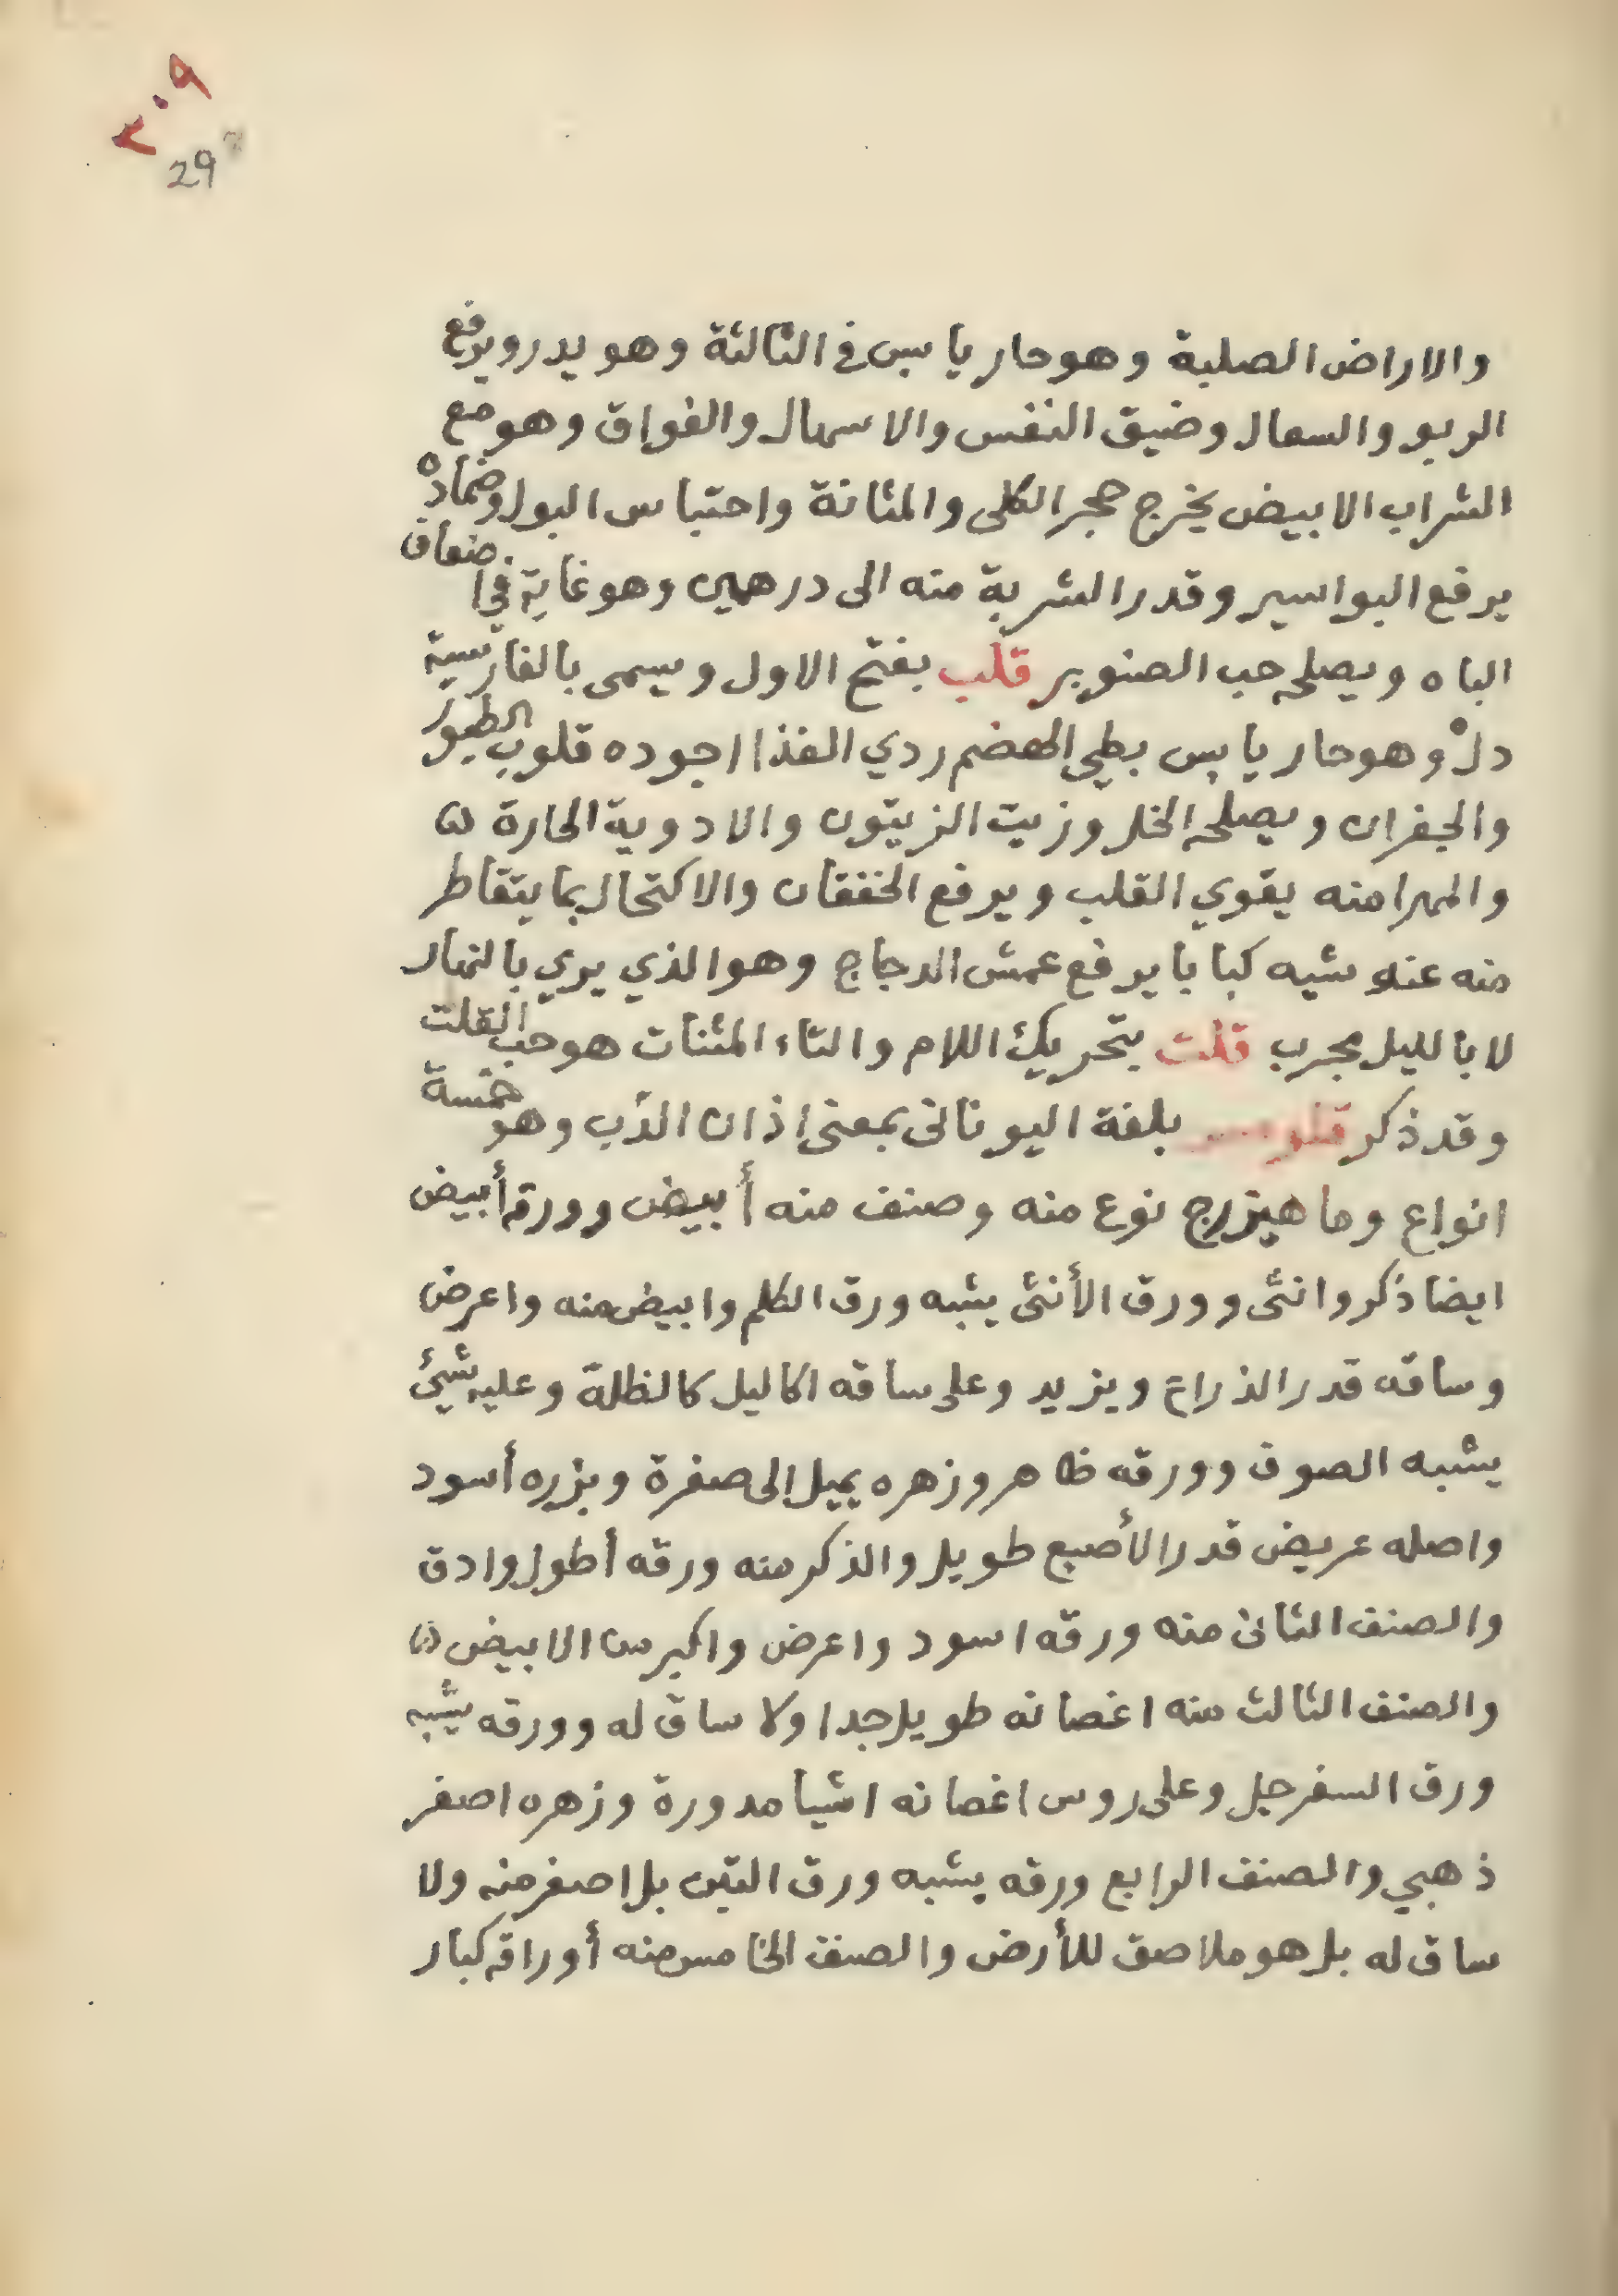 ٢٠٩
29
والاراض الصلبة وهو حار يابس في الثالثة وهو يدر ويرفع
الربو والسعال وضيق النفس والاسهال والفواق وهو مع
الشراب الابيض يخرج حجر الكلى والمثانة واحتباس البول وضماده
يرفع البواسير وقدر الشربة منه الى درهمين وهو غاية في اضعاف
الباه ويصلحه حب الصنوبر قلب بفتح الاول ويسمى بالفارسية
دلْ وهو حار يابس بطي الهضم ردي الغذا اجوده قلوب الطيور
والجفران ويصلحه الخل وزيت الزيتون والادوية الحارة
والمهرا منه يقوي القلب ويرفع الخفقان والاكتحال بما يتقاطر
منه عند شيه كبابا يرفع عمش الدجاج وهو الذي يري بالنهار
لا بالليل مجرب قلت بتحريك اللام والتاء المثنات هو حب القلت
وقد ذكر قلومس بلغة اليوناني بمعنى اذان الدب وهو خمسة
انواع وما هيزرج نوع منه وصنف منه أبيض وورقه أبيض
ايضا ذكر وانثى وورق الأنثى يشبه ورق الكلم وابيض منه واعرض
وساقه قدر الذراع ويزيد وعلى ساقه اكاليل كالظلة وعليه شيئ
يشبه الصوف وورقه ظاهر وزهره يميل إلى صفرة وبزره أسود
واصله عريض قدر الأصبع طويل والذكر منه ورقه أطول وادق
والصنف الثاني منه ورقه اسود واعرض واكبر من الابيض
والصنف الثالث منه اغصانه طويل جدا ولا ساق له وورقه يشبه
ورق السفرجل وعلى روس اغصانه اشيا مدورة وزهره اصفر
ذهبي والصنف الرابع ورقه يشبه ورق التين بل اصفر منه ولا
ساق له بل هو ملاصق للأرض والصنف الخامس منه أوراقه كبار